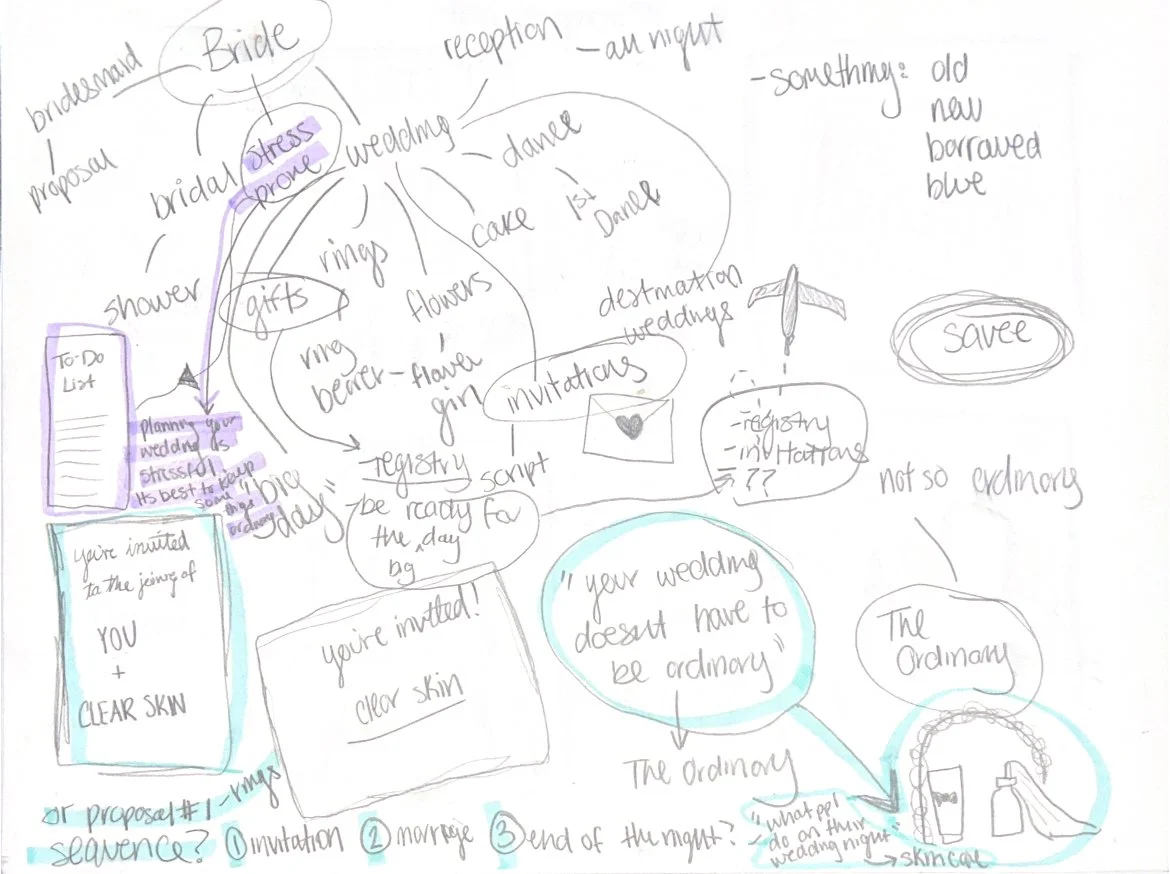 Bride
reception - all night
- something: old
new
borrowed
blue
bridesmaid
proposal
bridal
stress
prone
wedding
dance
1st
Dance
cake
rings
flowers
shower
gifts
ring
bearer - flower
girl
destination
weddings
invitations
savee
To-Do
List
planning your
wedding is
stressful
Its best to keep
some
things
ordinary
"big
day"
- registry
script
- be ready for
the day
big
- registry
- invitations
- ??
not so ordinary
You're invited
to the joining of
YOU
+
CLEAR SKIN
you're invited!
clear skin
"your wedding
doesn't have to
be ordinary"
The Ordinary
The
Ordinary
or proposal #1 - rings
sequence? ① invitation ② marriage ③ end of the night?
"what ppl
do on their
wedding night"
→ skincare